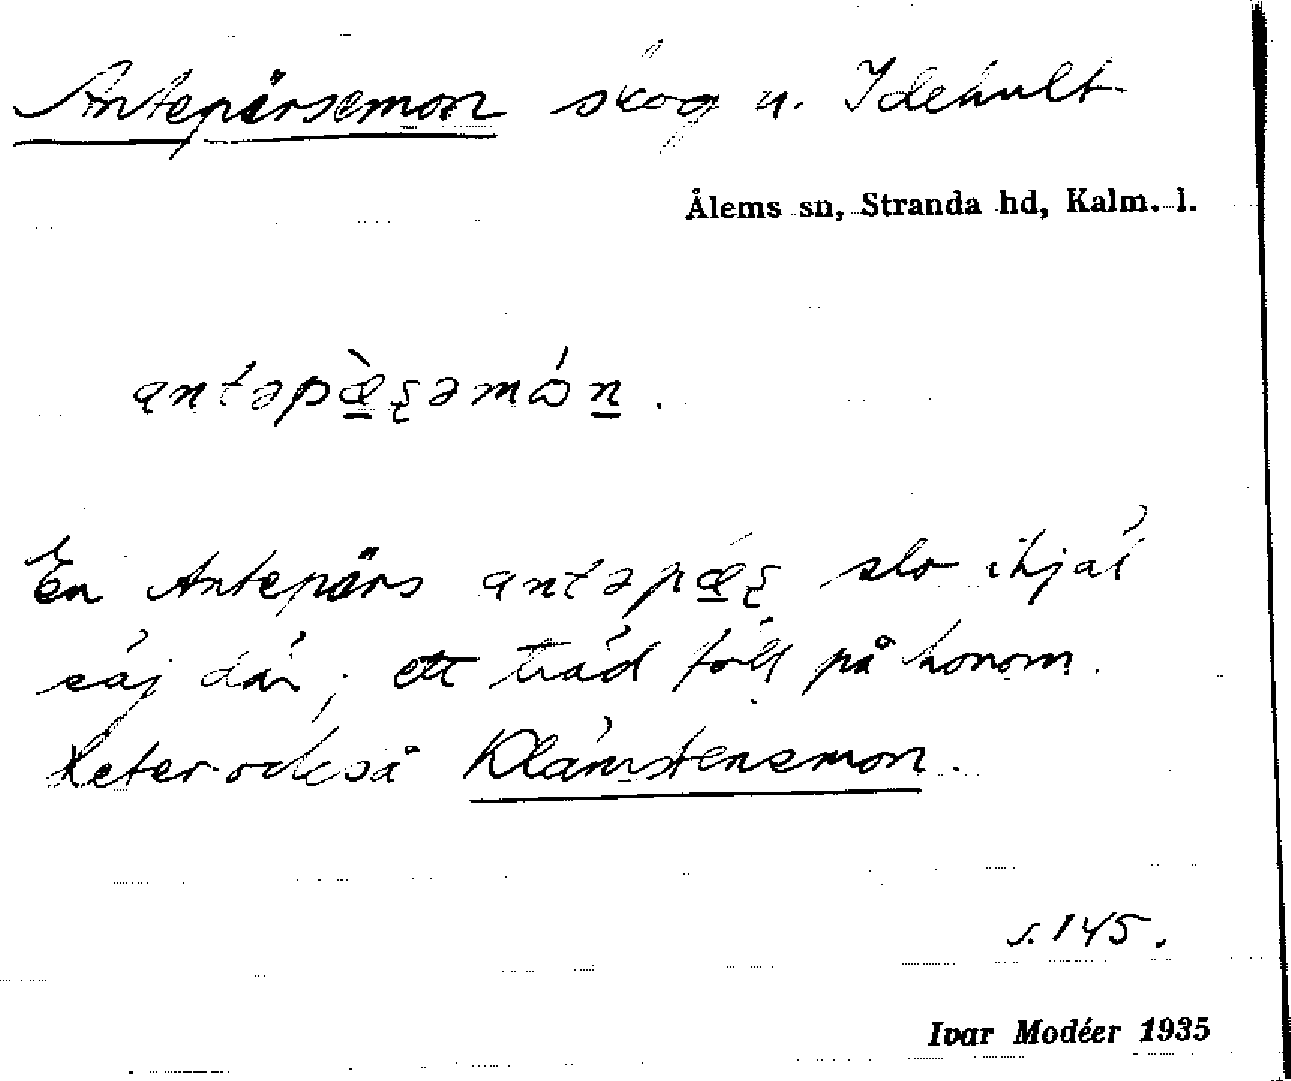 Antepärsemon skog u. Idehult
Ålems sn, Stranda hd, Kalm. l.
antəpæ̀ʂəmón.
En Antepärs antəpǽʂ slo ihjäl
säj där; ett träd föll på honom.
Heter också Klämstensmon.
s. 145.
Ivar Modéer 1935